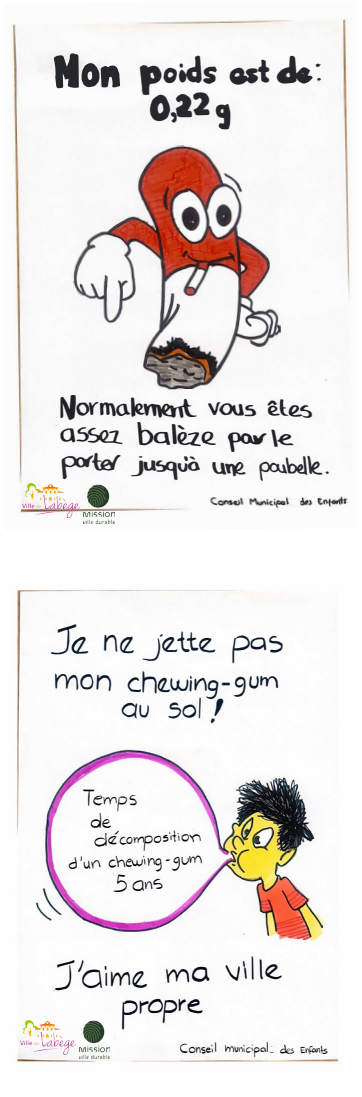 Mon poids est de:
0,22 g
Normalement vous êtes
assez balèze pour le
porter jusqu'à une poubelle.
Ville de Labège
Mission
ville durable
Conseil Municipal des Enfants
Je ne jette pas
mon chewing-gum
au sol !
Temps
de
décomposition
d'un chewing-gum
5 ans
J'aime ma ville
propre
Ville de Labège
Mission
ville durable
Conseil municipal: des Enfants